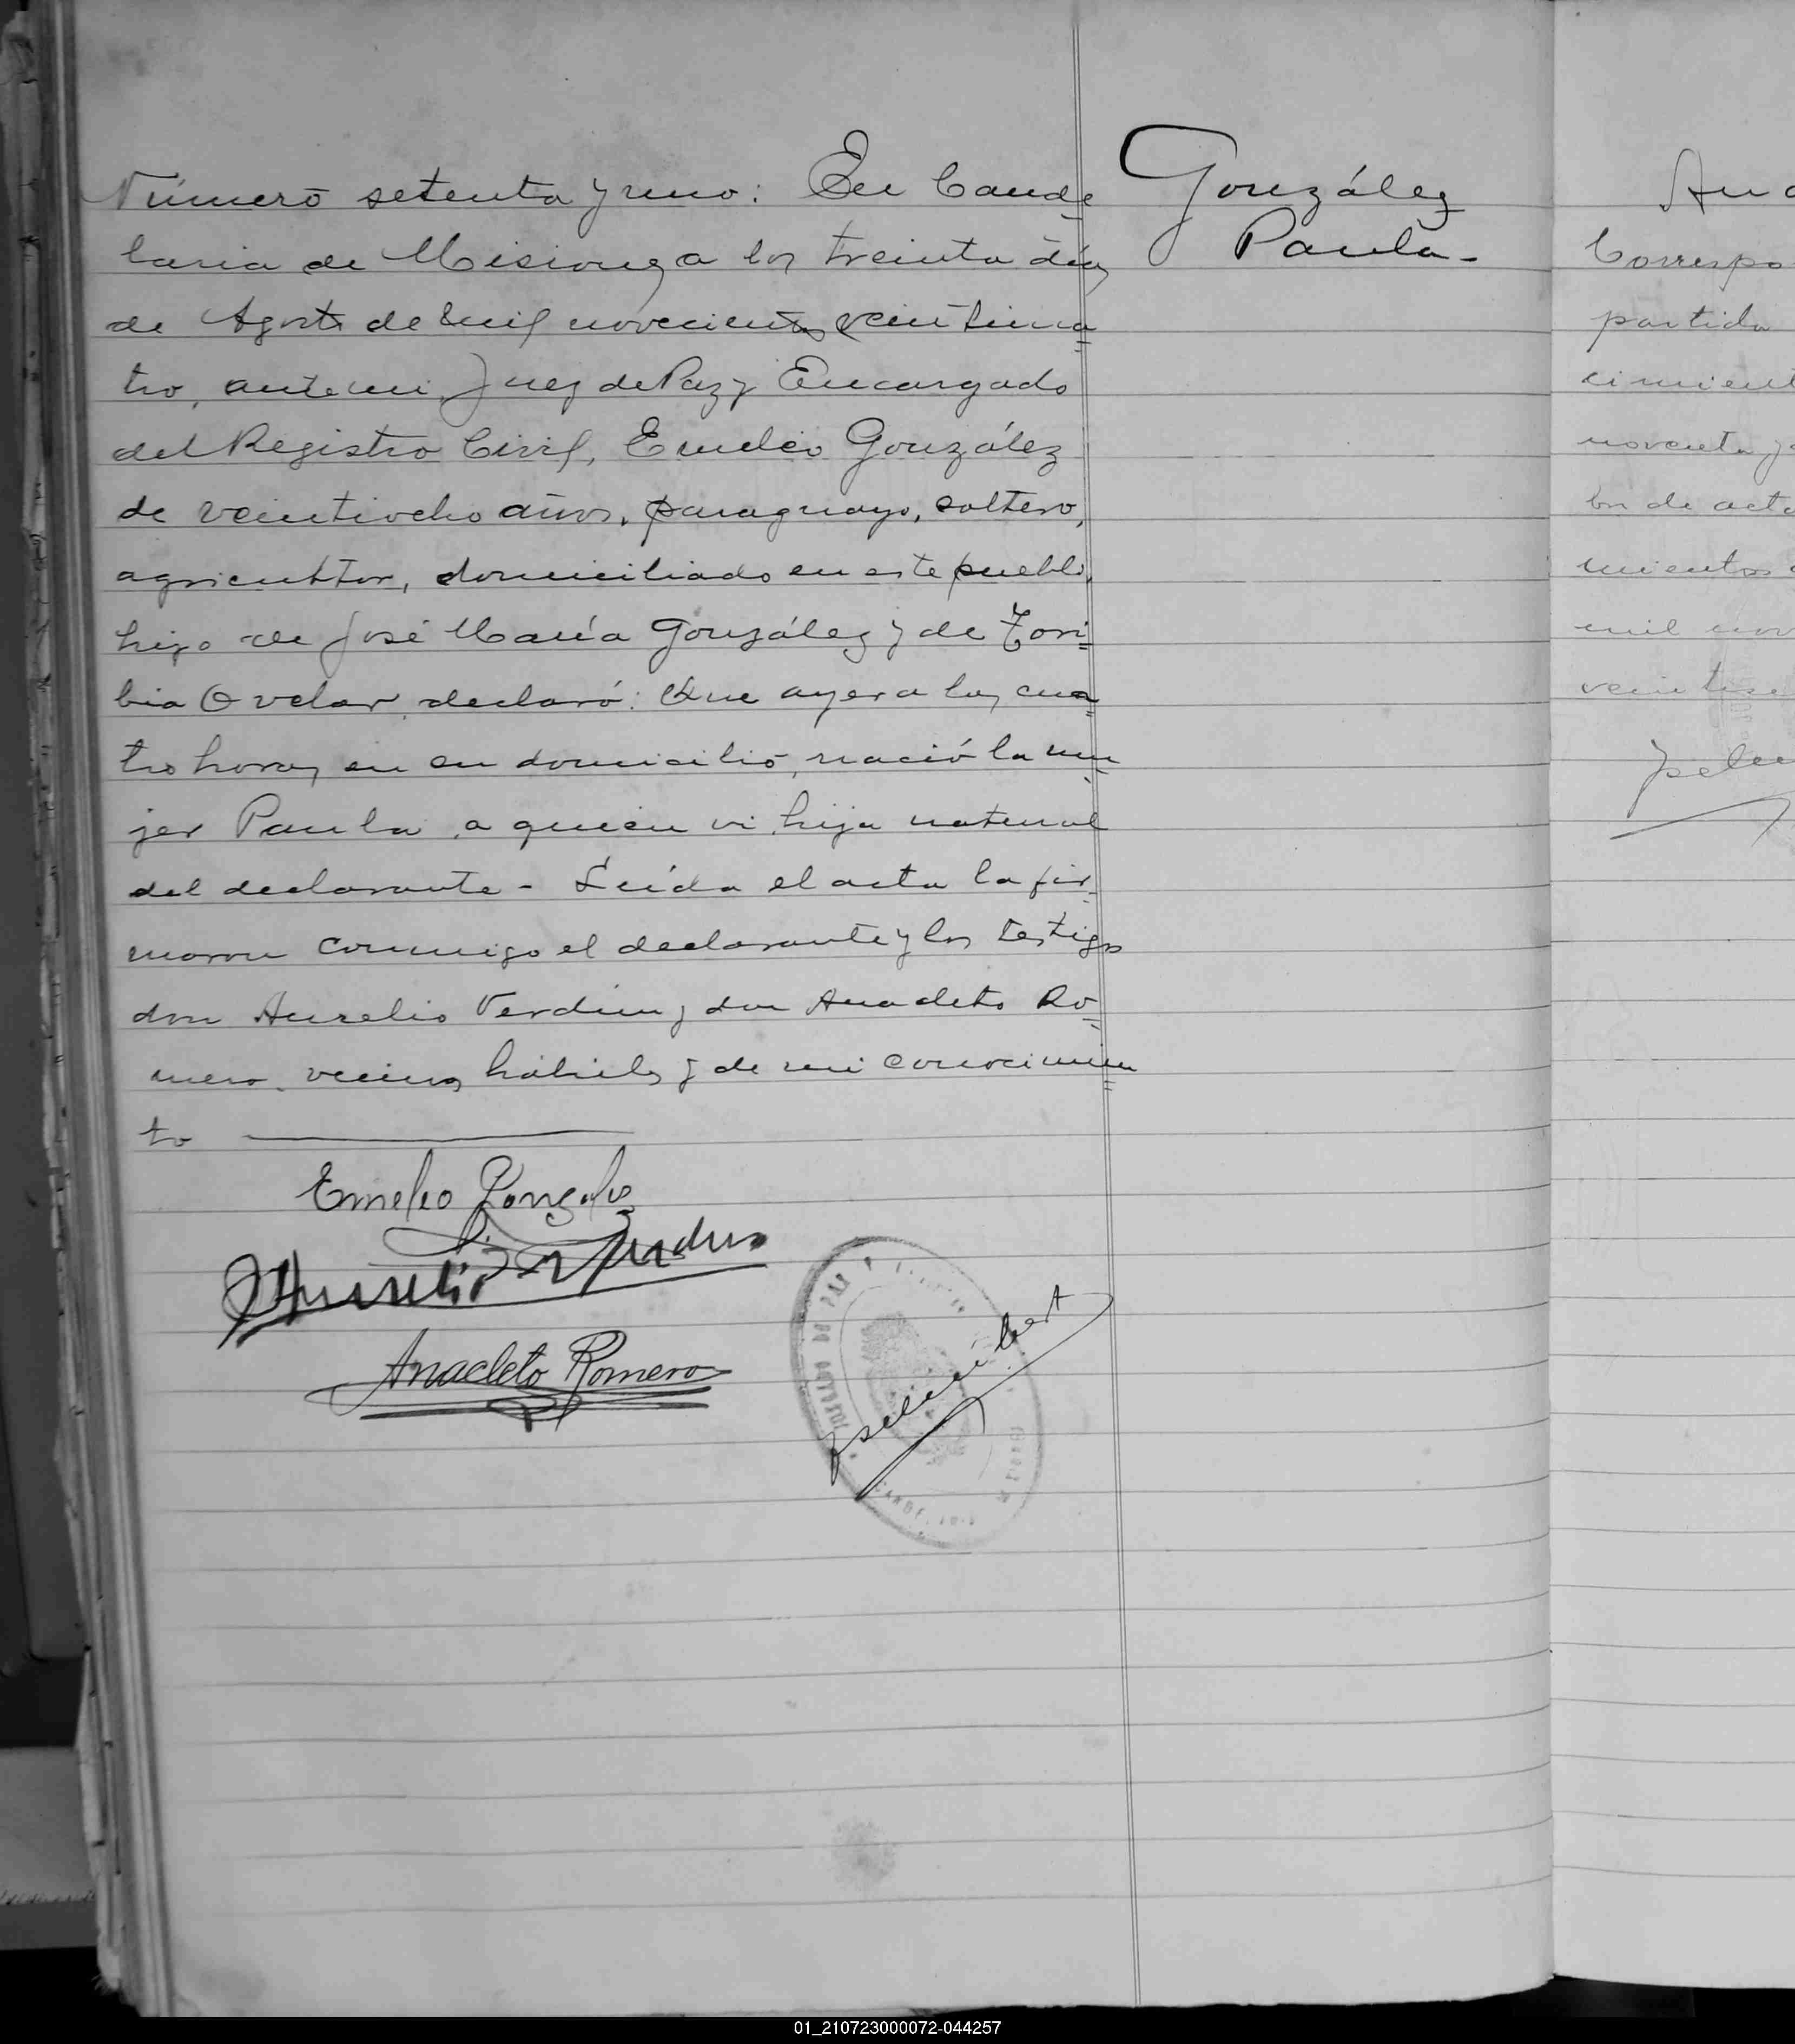 Número setenta y uno: En Cande
González
Paula.-
laria de Misiones a los treinta días
de Agosto de mil novecientos veinticua
tro, ante mi, Juez de Paz y Encargado
del Registro Civil, Emelio González
de veintiocho años, paraguayo, soltero,
agricultor, domiciliado en este pueblo,
hijo de José María González y de Tori
bia Ovelar, declaró: Que ayer a las cua
tro horas, en su domicilio, nació la mu
jer Paula, a quien vi, hija natural
del declarante - Leída el acta la fir
maron conmigo el declarante y los testigos
don Aurelio Verdun y don Anacleto Ro
mero, vecinos, hábiles y de mi conocimien
to
Emelio Gonzales
Aurelio Verdun
Anacleto Romero
DE PAZ
Correspo
partida
cimient
noventa y
bro de acta
mientos
mil nov